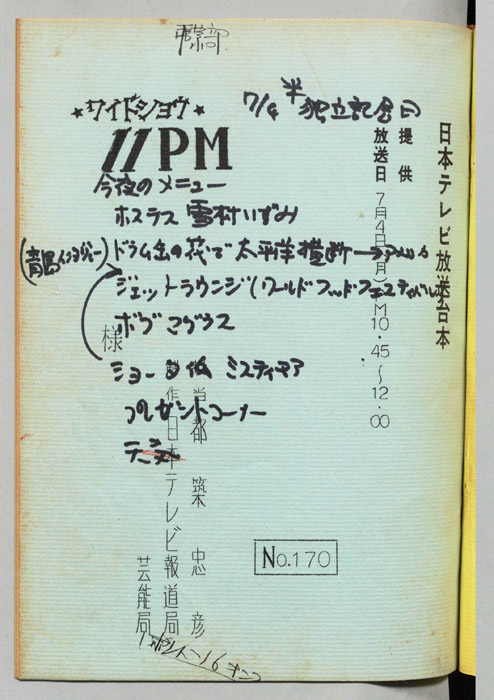 7/4 米独立記念日
★ワイドショウ★
11PM
日本テレビ放送台本
提供
放送日 7月4日(月)PM10.45〜12.00
今夜のメニュー
ホステス 雪村いずみ
(青島インタヴュー)
ドラム缶の筏で太平洋横断
ジェットラウンジ(ワールドフッドフェスティバル)
ボブマグラス
様
ショート仮 ミスティコア
プレゼントコーナー
天気
担当 都築忠彦
製作 日本テレビ報道局
芸能局
No.170